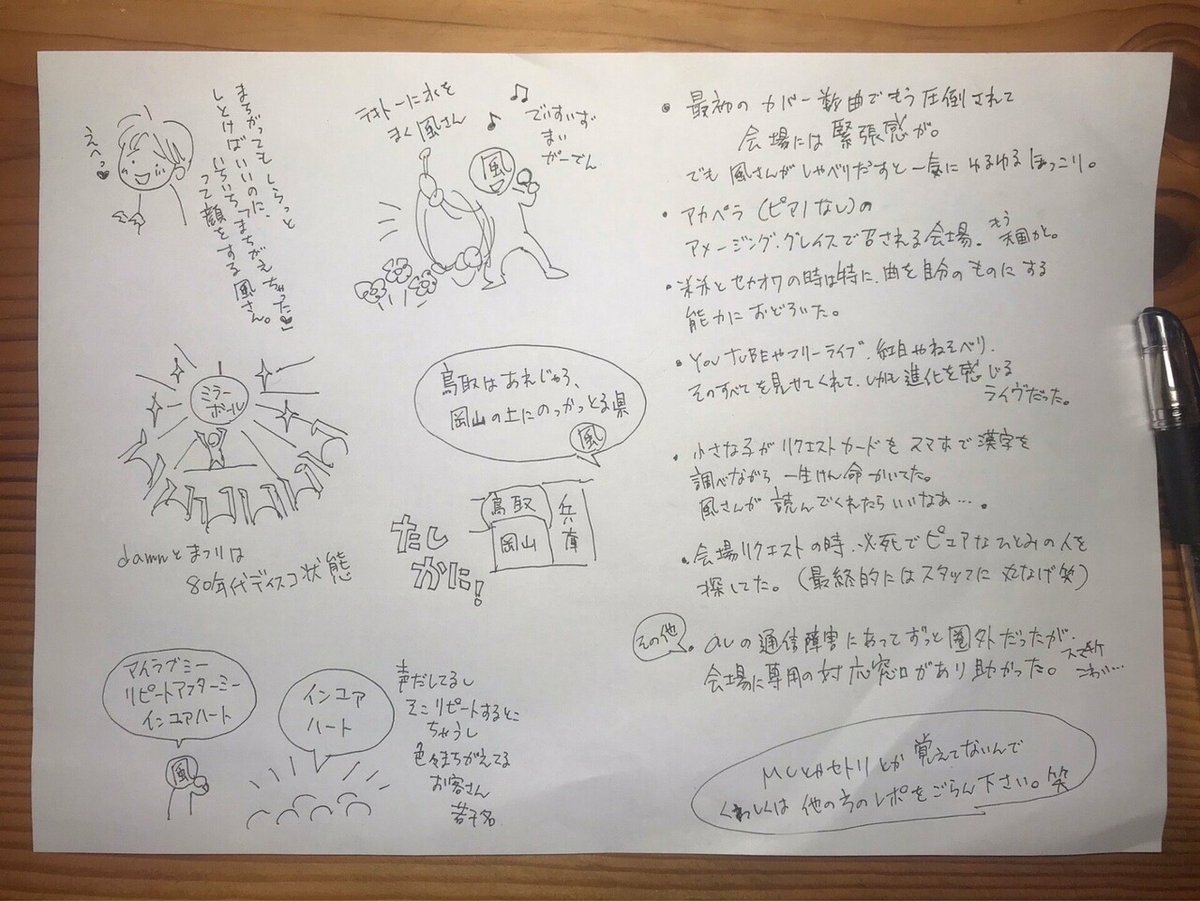 まちがってもしらっと
しとけばいいのに、
いちいち「まちがえちゃった♥」
って顔をする風さん。
えへっ♥
テキトーに水を
まく風さん
でぃすいず
まい
がーでん
風
ミラー
ボール
damnとまつりは
80年代ディスコ状態
鳥取はあれじゃろ、
岡山の上にのっかっとる県
風
鳥取
岡山
兵庫
たし
かに!
アイラブミー
リピートアフターミー
インユアハート
風
インユア
ハート
声だしてるし
そこリピートするとこ
ちゃうし
色々まちがえてる
お客さん
若干名
・最初のカバー数曲でもう圧倒されて
会場には緊張感が。
でも風さんがしゃべりだすと一気にゆるゆるほっこり。
・アカペラ(ピアノなし)の
アメージング・グレイスで召される会場。もう天国かと。
・米米とセカオワの時は特に、曲を自分のものにする
能力におどろいた。
・YouTUBEやフリーライブ、紅白やねそべり、
そのすべてを見せてくれて、しかも進化を感じる
ライヴだった。
・小さな子がリクエストカードをスマホで漢字を
調べながら一生けん命かいてた。
風さんが読んでくれたらいいなあ…。
・会場リクエストの時、必死でピュアなひとみの人を
探してた。(最終的にはスタッフに丸なげ笑)
その他
・auの通信障害にあってずっと圏外だったが、
会場に専用の対応窓口があり助かった。
こわい…
MCとかセトリとか覚えてないんで
くわしくは他の方のレポをごらん下さい。笑